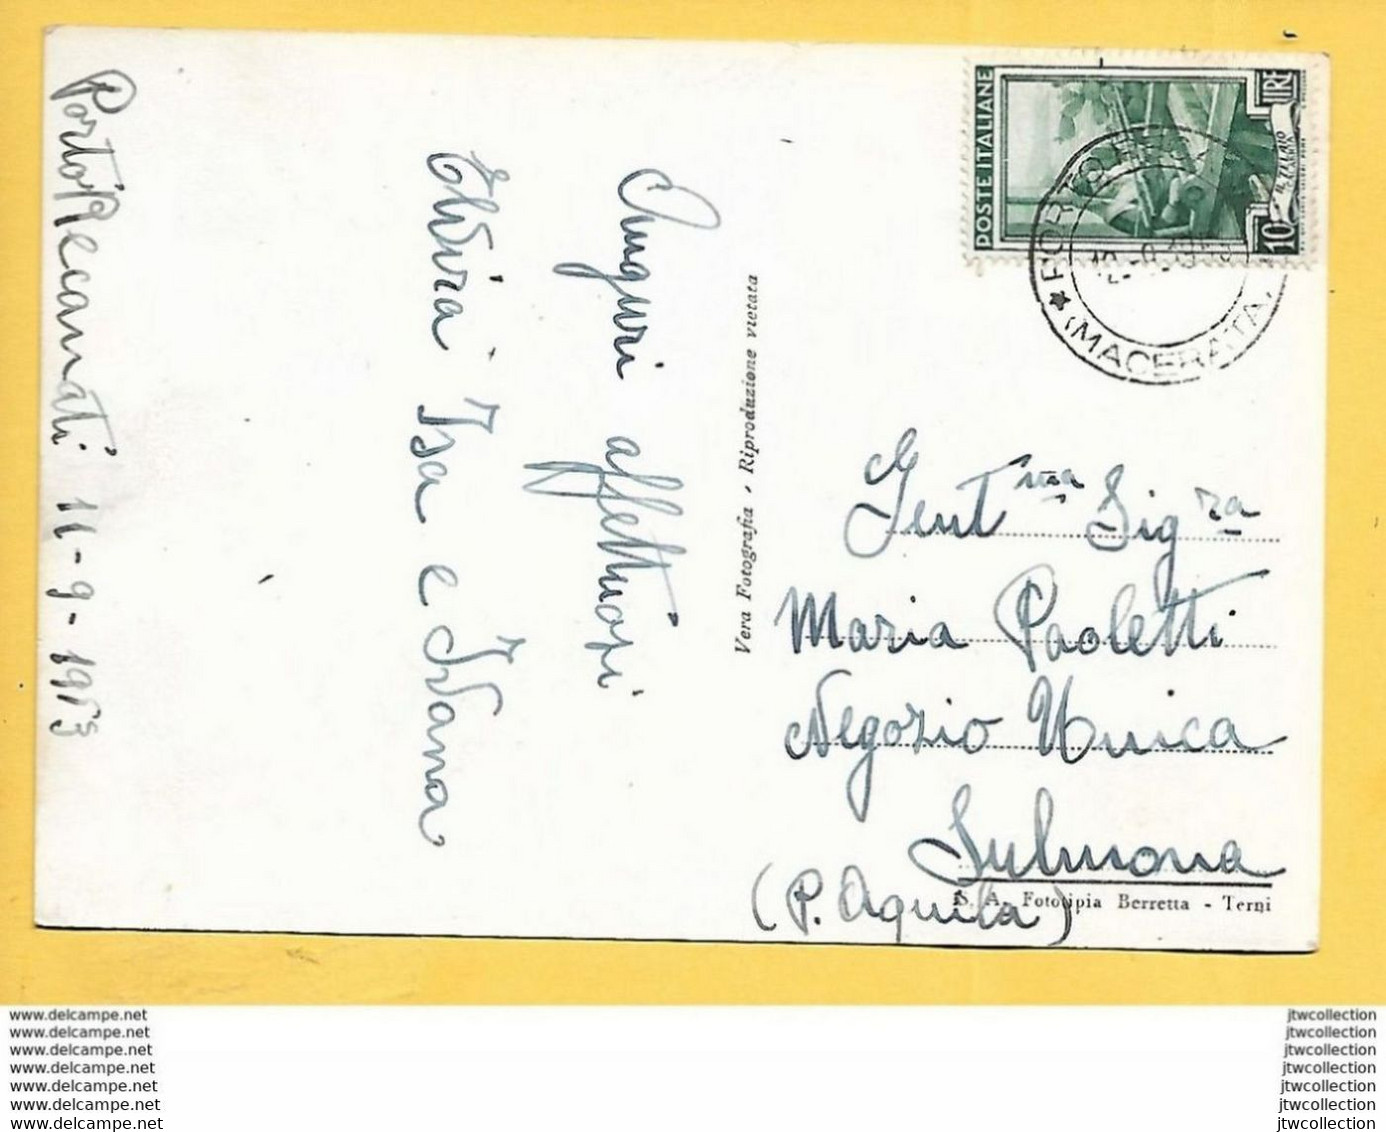 Porto Recanati 11-9-1953
Auguri affettuosi
Elvira Isa e Ivana
Vera Fotografia - Riproduzione vietata
POSTE ITALIANE
10 LIRE
IL TELAIO
PORTO
(MACERATA)
Gent.ma Sig.ra
Maria Paoletti
Negozio Unica
Sulmona
(P. Aquila)
S. A. Fototipia Berretta - Terni
www.delcampe.net
www.delcampe.net
www.delcampe.net
www.delcampe.net
www.delcampe.net
www.delcampe.net
www.delcampe.net
jtwcollection
jtwcollection
jtwcollection
jtwcollection
jtwcollection
jtwcollection
jtwcollection